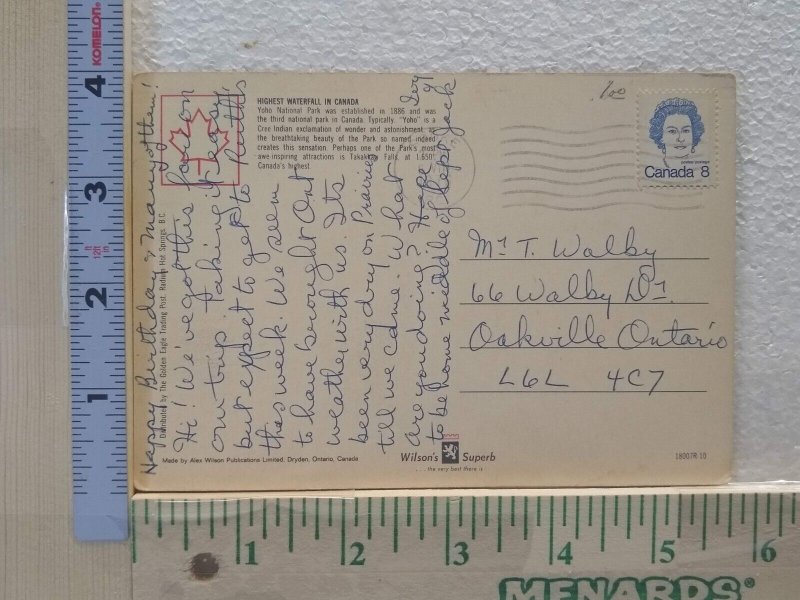 HIGHEST WATERFALL IN CANADA
Yoho National Park was established in 1886 and was
the third national park in Canada. Typically, "Yoho" is a
Cree Indian exclamation of wonder and astonishment, as
the breathtaking beauty of the Park so named indeed
creates this sensation. Perhaps one of the Park's most
awe-inspiring attractions is Takakkaw Falls, at 1,650'
Canada's highest.
Happy Birthday & many of them!
Distributed by The Golden Eagle Trading Post, Radium Hot Springs, B.C.
Hi! We've got this far on
our trip. Taking it easy
but expect to get to Ruth's
this week. We seem
to have brought Ont
weather with us. Its
been very dry on Prairies
till we came. What
are you doing? Hope
to be home middle of Sept. Jack
Ivy
&
Canada 8
postes postage
Mr T. Walby
66 Walby Dr.
Oakville Ontario
L6L 4C7
Made by Alex Wilson Publications Limited, Dryden, Ontario, Canada
Wilson's Superb
. . . the very best there is
18007R-10
KOMELON
4
3
12ft
in
2
1
1 2 3 4 5 6
MENARDS®